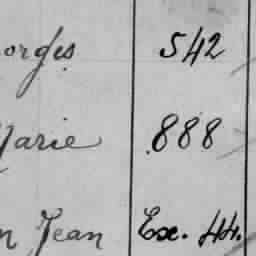 orges 542
Marie 888
n Jean Exe. 44.